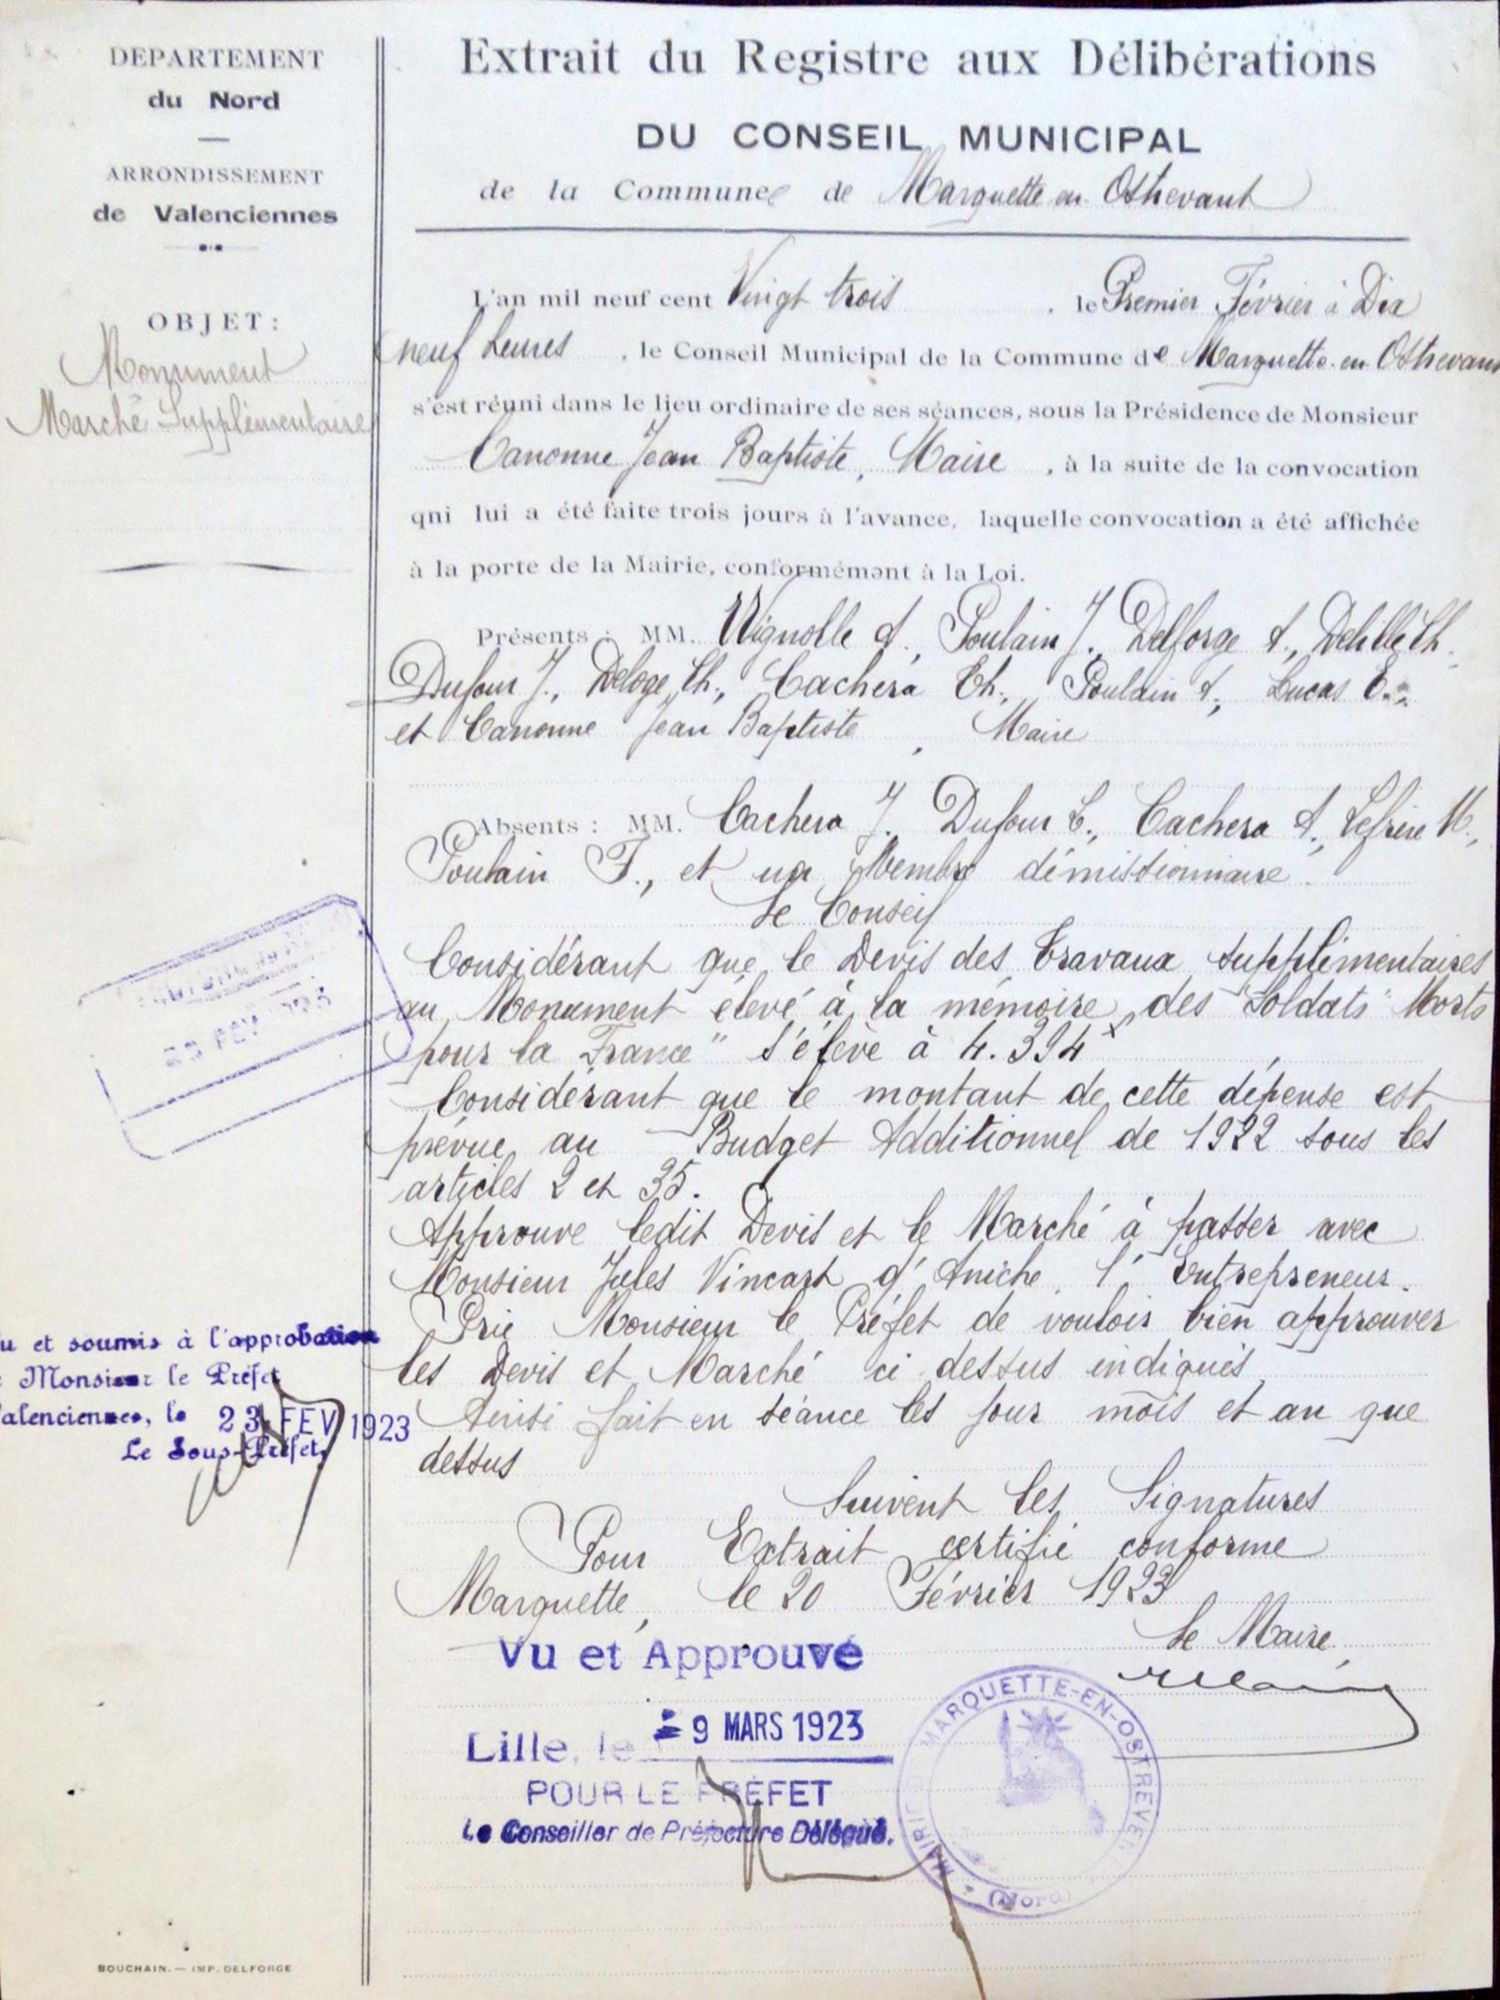 DEPARTEMENT
du Nord
ARRONDISSEMENT
de Valenciennes
OBJET:
Monument
Marché Supplémentaire
Extrait du Registre aux Délibérations
DU CONSEIL MUNICIPAL
de la Commune de Marquette en Osthevant
L'an mil neuf cent Vingt trois, le Premier Février à Dix
neuf heures, le Conseil Municipal de la Commune de Marquette-en-Osthevant
s'est réuni dans le lieu ordinaire de ses séances, sous la Présidence de Monsieur
Canonne Jean Baptiste, Maire, à la suite de la convocation
qni lui a été faite trois jours à l'avance, laquelle convocation a été affichée
à la porte de la Mairie, conformémənt à la Loi.
Présents: MM. Wignolle A., Poulain J., Delforge A., Delille Ch.
Dufour J., Deloge Ch., Cachera Ch., Poulain A., Lucas E.,
et Canonne Jean Baptiste, Maire
Absents: MM. Cachera J., Dufour E., Cachera A., Lefrère M.,
Poulain F., et un Membre démissionnaire.
Le Conseil
Considérant que le Devis des travaux supplémentaires
au Monument élevé à la mémoire des "Soldats Morts
pour la France" s'élève à 4.394
Considérant que le montant de cette dépense est
prévue au Budget Additionnel de 1922 sous les
articles 2 et 35.
Approuve ledit Devis et le Marché à passer avec
Monsieur Jules Vincart d'Aniche, l'Entrepreneur.
Prie Monsieur le Préfet de vouloir bien approuver
les Devis et Marché ci dessus indiqués
Ainsi fait en séance les jour mois et an que
dessus
Suivent les Signatures
Pour Extrait certifié conforme
Marquette, le 20 Février 1923
Le Maire,
23 FEV
u et soumis à l'approbation
Monsieur le Préfet
alenciennes, le 23 FEV 1923
Le Sous-Préfet,
Vu et Approuvé
Lille, le - 9 MARS 1923
POUR LE PRÉFET
Le Conseiller de Préfecture Délégué.
MAIRIE MARQUETTE-EN-OSTREVENT
(Nord)
BOUCHAIN. — IMP. DELFORGE